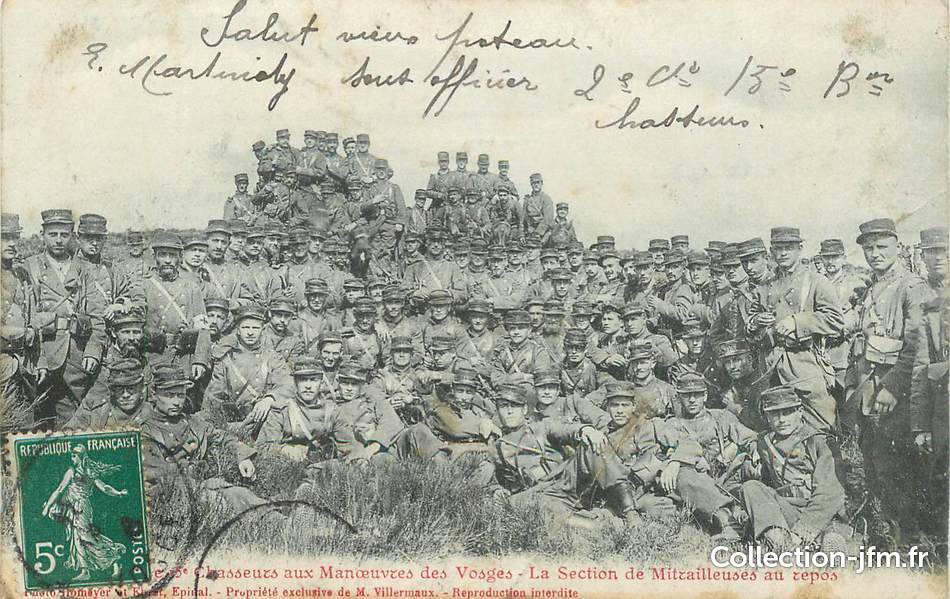 Salut vieux poteau.
E. Martinoty sous officier 2e Cie 15e Bon
Chasseurs.
RÉPUBLIQUE FRANÇAISE
5c
5e Chasseurs aux Manœuvres des Vosges - La Section de Mitrailleuses au repos
Photo Homeyer et Ehret, Epinal. - Propriété exclusive de M. Villermaux. - Reproduction interdite
Collection-jfm.fr